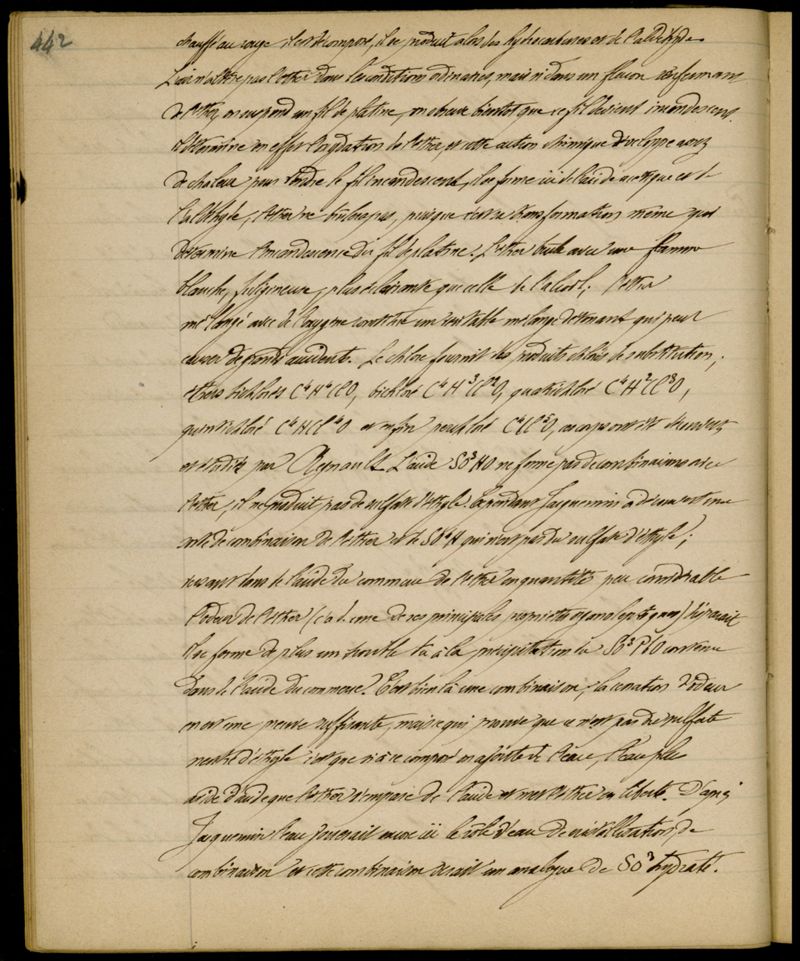 442
chauffé au rouge, il se décompose, il se produit alors des hydrocarbures et de l'aldéhyde
L'air n'altère pas l'éther dans les conditions ordinaires, mais si dans un flacon renfermant
de l'éther, on suspend un fil de platine, on observe bientôt que ce fil devient incandescent.
il détermine en effet l'oxydation de l'éther, et cette action chimique développe assez
de chaleur pour rendre le fil incandescent, il se forme ici de l'acide acétique et de
l'aldéhyde, l'éther ne brûle pas, puisque c'est sa transformation même qui
détermine l'incandescence du fil de platine. L'éther brûle avec une flamme
blanche, fuligineuse, plus éclairante que celle de l'alcool; l'éther
mélangé avec de l'oxygène constitue un véritable mélange détonant qui peut
causer de grands accidents. Le chlore fournit des produits chlorés de substitution;
éthers C⁴H⁴ClO, bichloré C⁴H³Cl²O, quadrichloré C⁴H²Cl³O,
quintichloré C⁴HCl⁴O et enfin perchloré C⁴Cl⁵O, ces corps ont été découverts
et étudiés par Regnault. L'acide SO³HO ne forme pas de combinaisons avec
l'éther, il ne produit pas de sulfate d'éthyle. Cependant Jacquemin a découvert une
sorte de combinaison de l'éther et de SO⁴H qui n'est pas du sulfate d'éthyle;
versant dans de l'acide du commerce de l'éther en quantité peu considérable
l'odeur de l'éther (c'est à dire une de ses principales propriétés organoleptiques) disparaît
il se forme de plus un trouble dû à la précipitation du SO³PbO contenu
dans de l'acide du commerce. C'est bien là une combinaison, la cessation d'odeur
en est une preuve suffisante, mais ce qui prouve que ce n'est pas du sulfate
neutre d'éthyle c'est que si à ce composé on ajoute de l'eau, l'eau plus
avide d'acide que l'éther s'empare de l'acide et met l'éther en liberté. D'après
Jacquemin l'eau jouerait ici le rôle d'eau de cristallisation, de
combinaison et cette combinaison serait un analogue de SO³ hydraté.